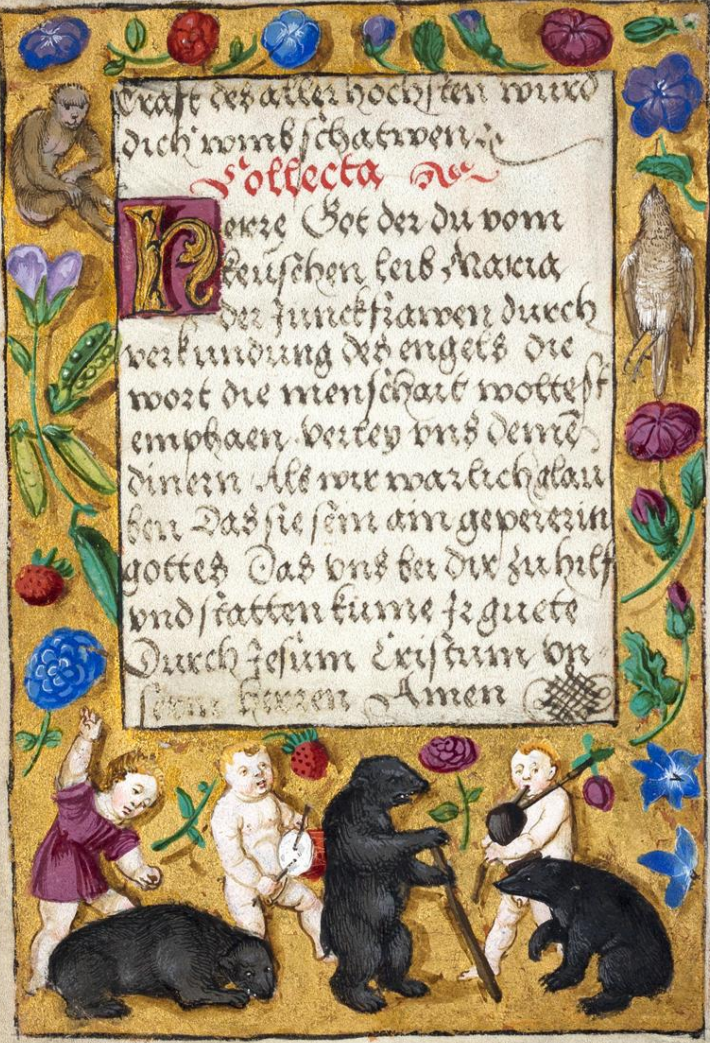 Craft des aller hochsten wurd
dich vmbschatwen
Collecta
Herre Got der du vom
keuschen leib Maria
der Junckfrawen durch
verkundung des engels die
wort die menschait woltest
emphaen verley vns deinē
dinern Als wir warlich glau
ben Das sie seÿ ain gepererin
gottes Das vns bei dir zu hilf
vnd statten kume Jr guete
Durch Jesum Cristum vn
sern herren Amen